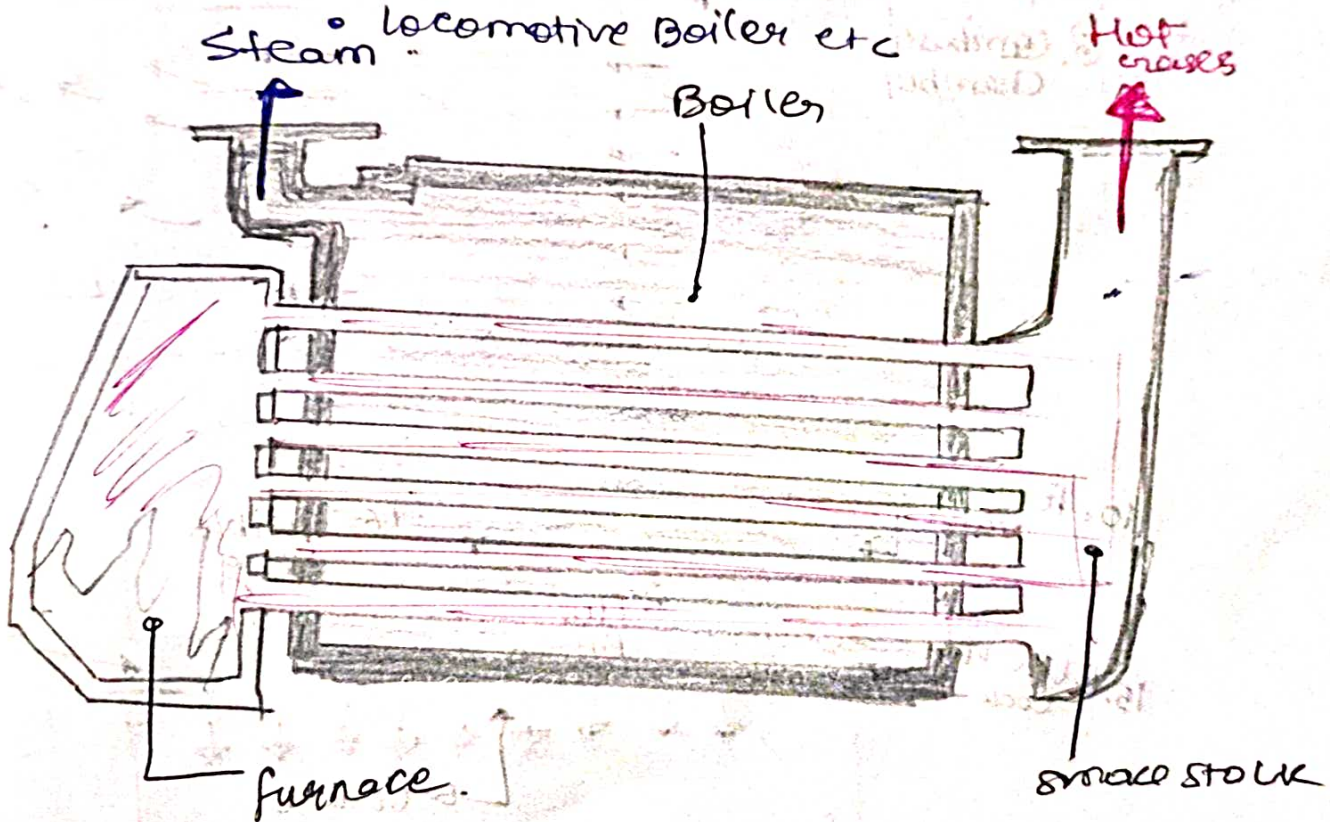 • Locomotive Boiler etc
Steam
Hot
Gases
Boiler
furnace.
smoke stock